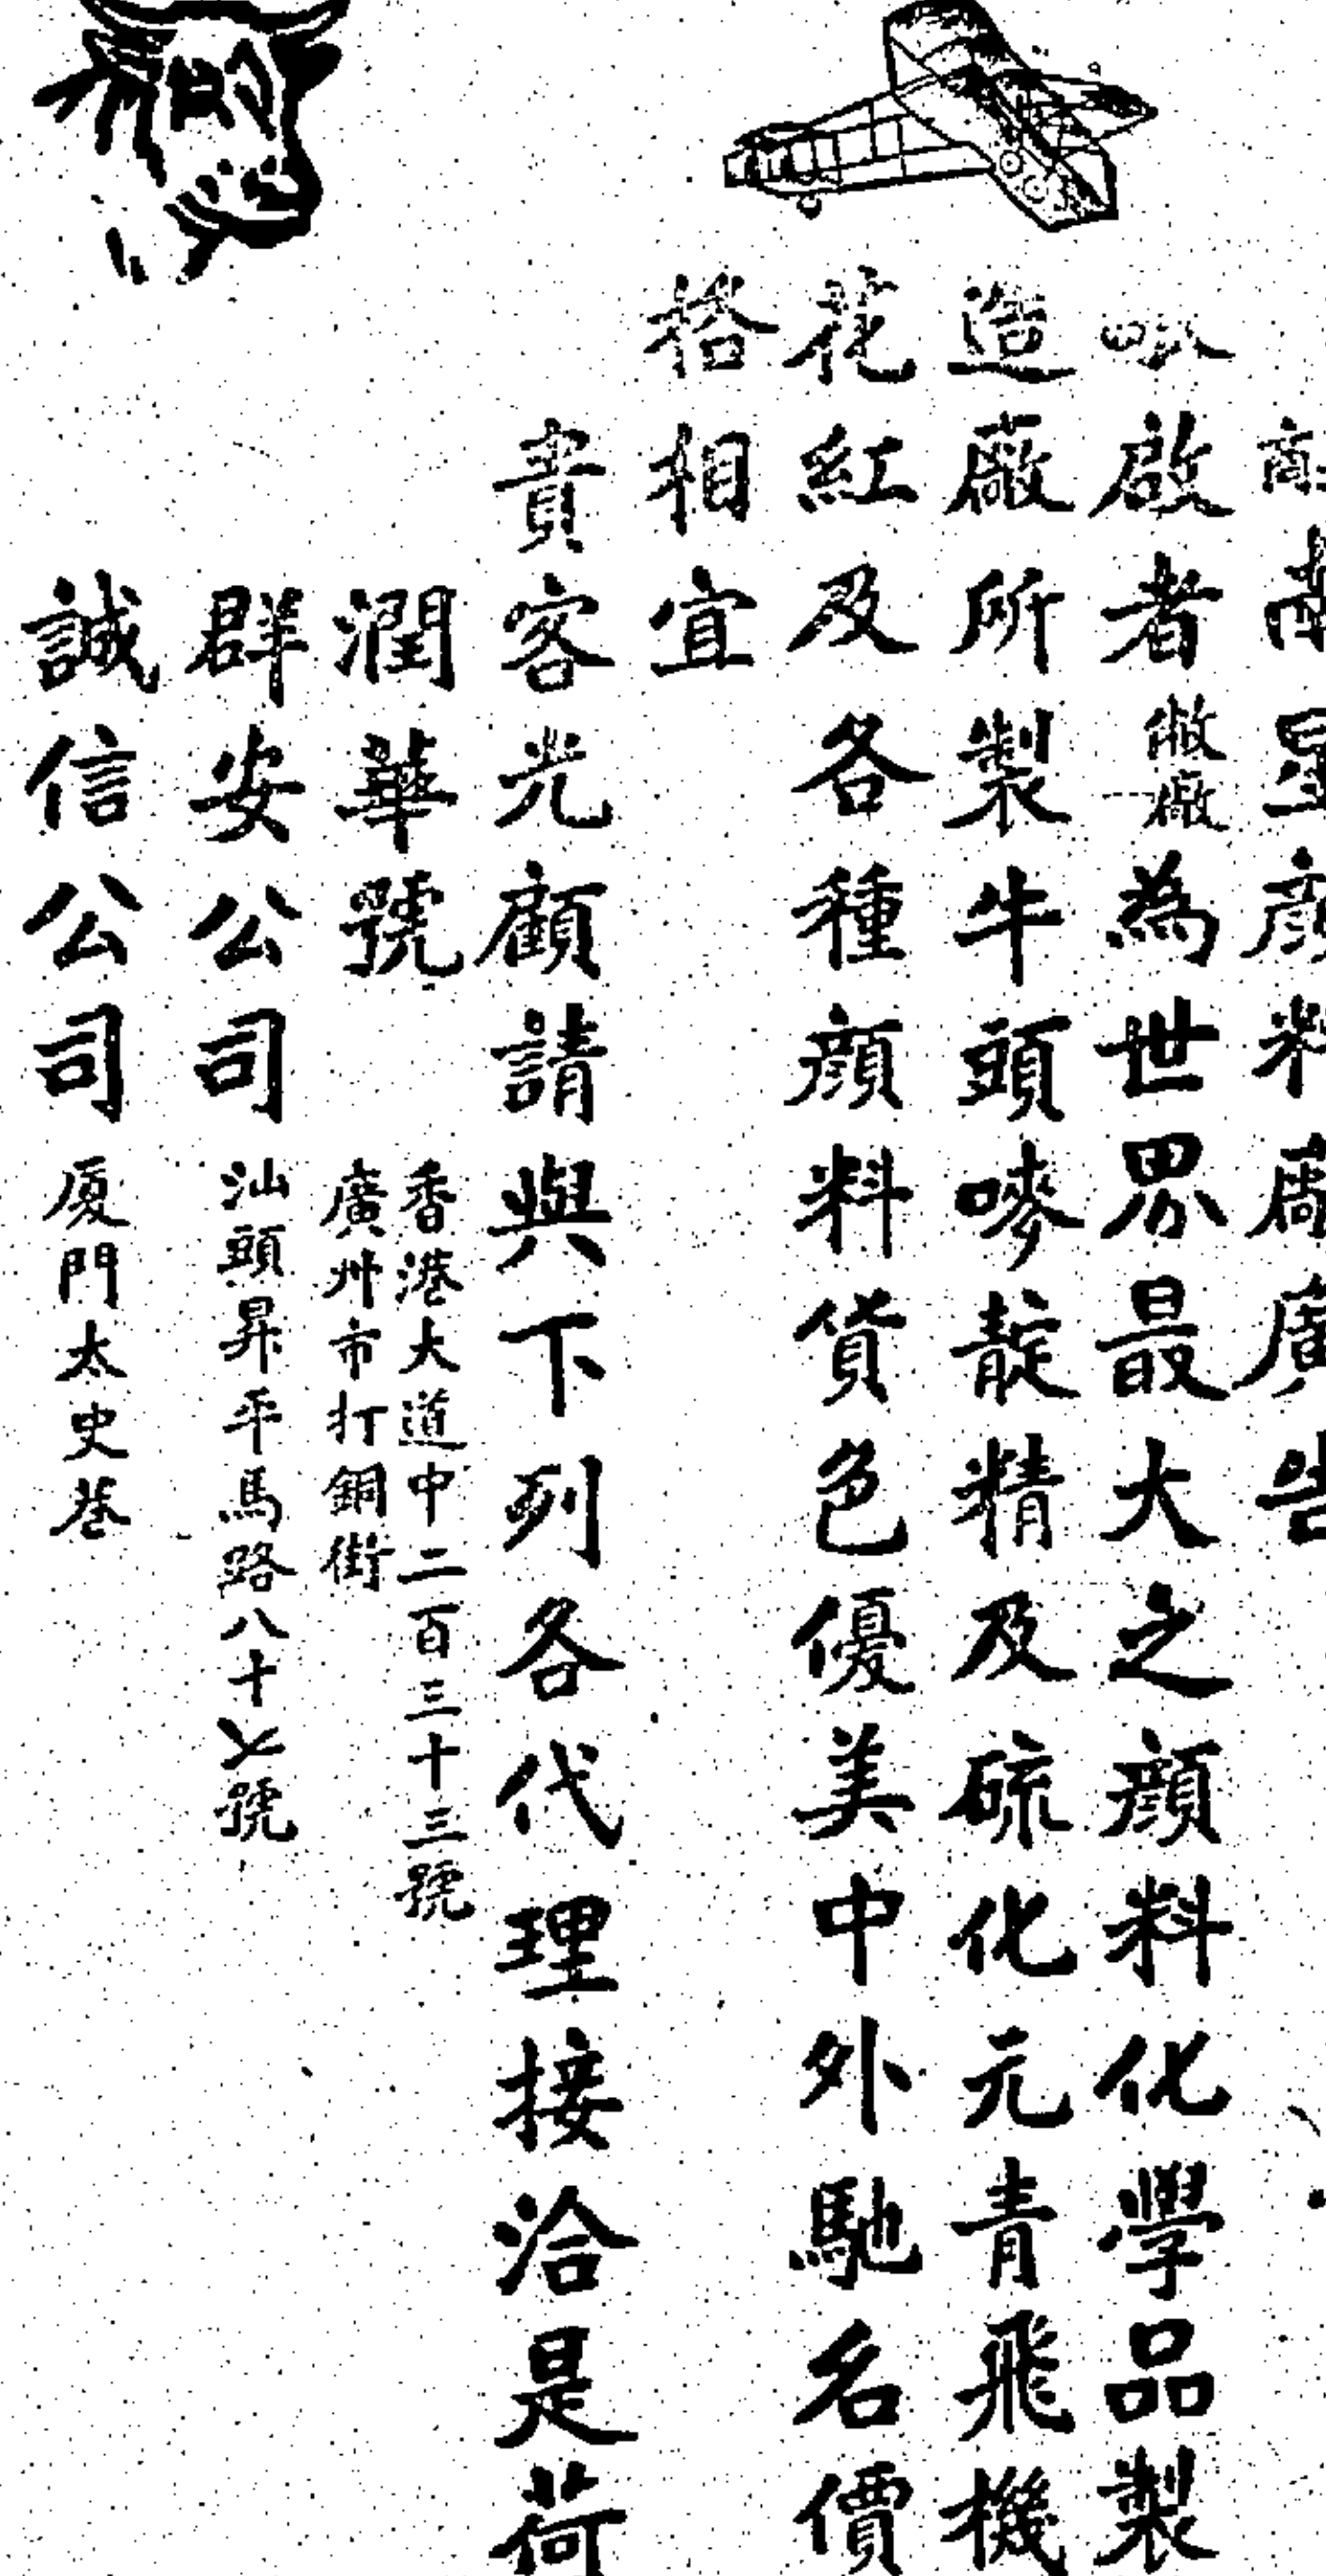 南星顔料廠廣告
啟者敝廠為世界最大之顔料化學品製
造廠所製牛頭嘜靛精及硫化元青飛機
花紅及各種顔料貨色優美中外馳名價
格相宜
貴客光顧請與下列各代理接洽是荷
潤華號 香港大道中二百三十三號
廣州市打銅街
群安公司 汕頭昇平馬路八十號
誠信公司 厦門太史巷